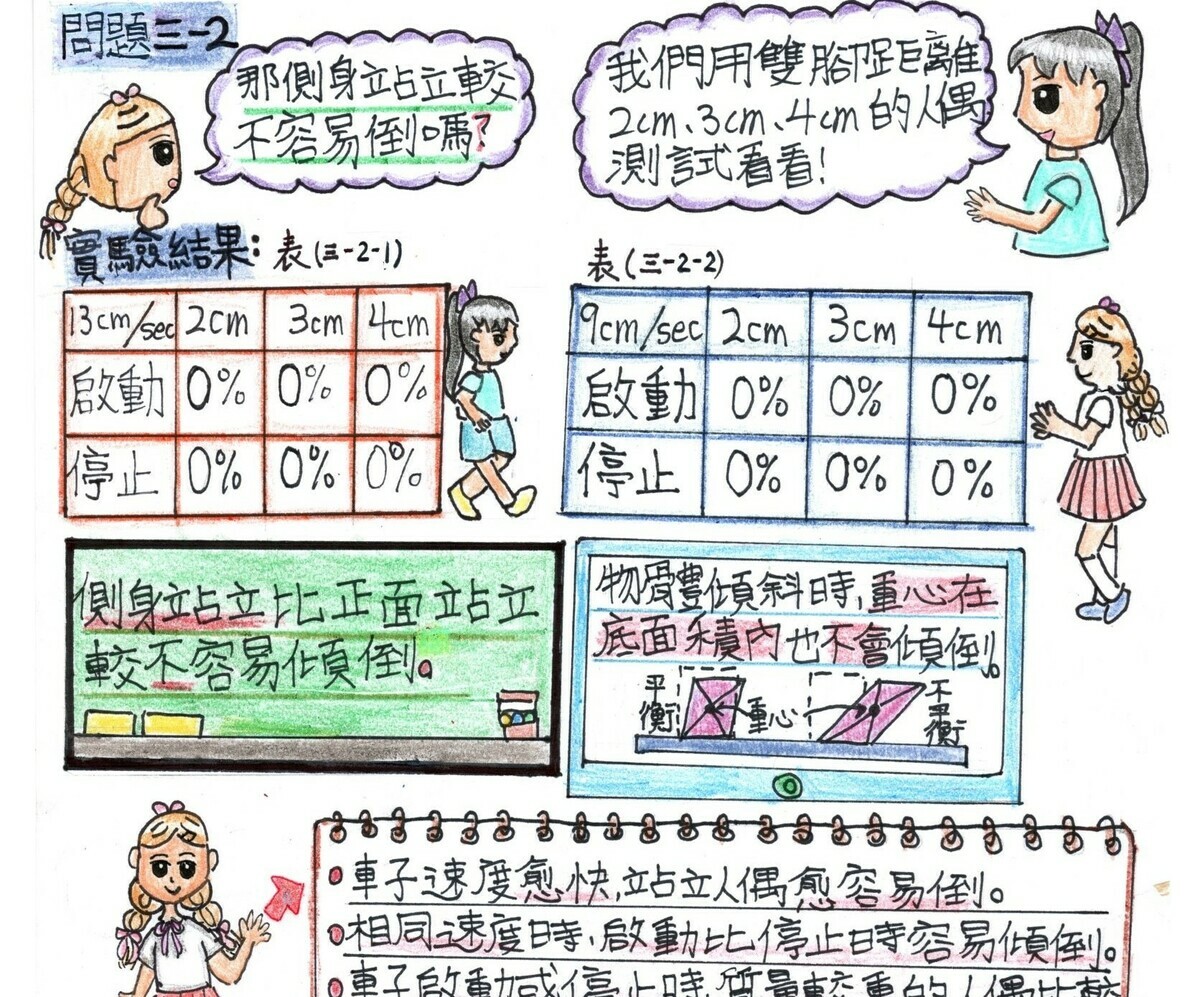 問題三-2
那側身站立較
不容易倒嗎?
我們用雙腳距離
2cm、3cm、4cm的人偶
測試看看!
實驗結果:表(三-2-1)
13cm/sec 2cm 3cm 4cm
啟動 0% 0% 0%
停止 0% 0% 0%
表(三-2-2)
9cm/sec 2cm 3cm 4cm
啟動 0% 0% 0%
停止 0% 0% 0%
側身站立比正面站立
較不容易傾倒。
物體傾斜時,重心在
底面積內也不會傾倒。
平衡 重心 不平衡
車子速度愈快,站立人偶愈容易倒。
相同速度時,啟動比停止時容易傾倒。
車子啟動或停止時,質量較重的人偶比較